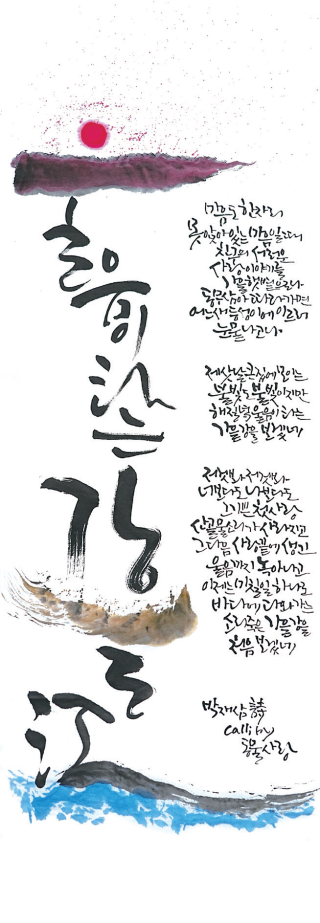 울음이
타는
강
가을
江
마음도 한자리
못 앉아 있는 마음일 때,
친구의 서러운
사랑 이야기를
가을햇볕으로나
동무삼아 따라가면
어느새 등성이에 이르러
눈물나고나.
제삿날 큰집에 모이는
불빛도 불빛이지만
해질녘 울음이 타는
가을강을 보겠네
저것봐 저것봐
네보다도 내보다도
그 기쁜 첫사랑
산골물소리가 사라지고
그 다음 사랑끝에 생긴
울음까지 녹아나고
이제는 미칠 일 하나로
바다에 다와가는
소리죽은 가을강을
처음 보겠네
박재삼 詩
calli by
사랑